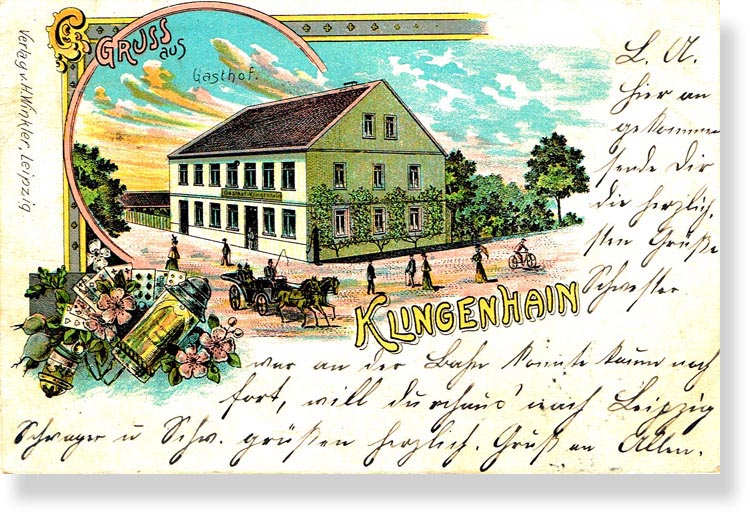 GRUSS aus
Gasthof.
Verlag v. H. Winkler, Leipzig
KLINGENHAIN
L. A.
Hier an
gekommen
sende Dir
die herzlich
sten Grüße
Schwester
war an der Bahn konnte kaum noch
fort, will durchaus nach Leipzig
Schwager u Schw. grüßen herzlich. Gruß an Allen.